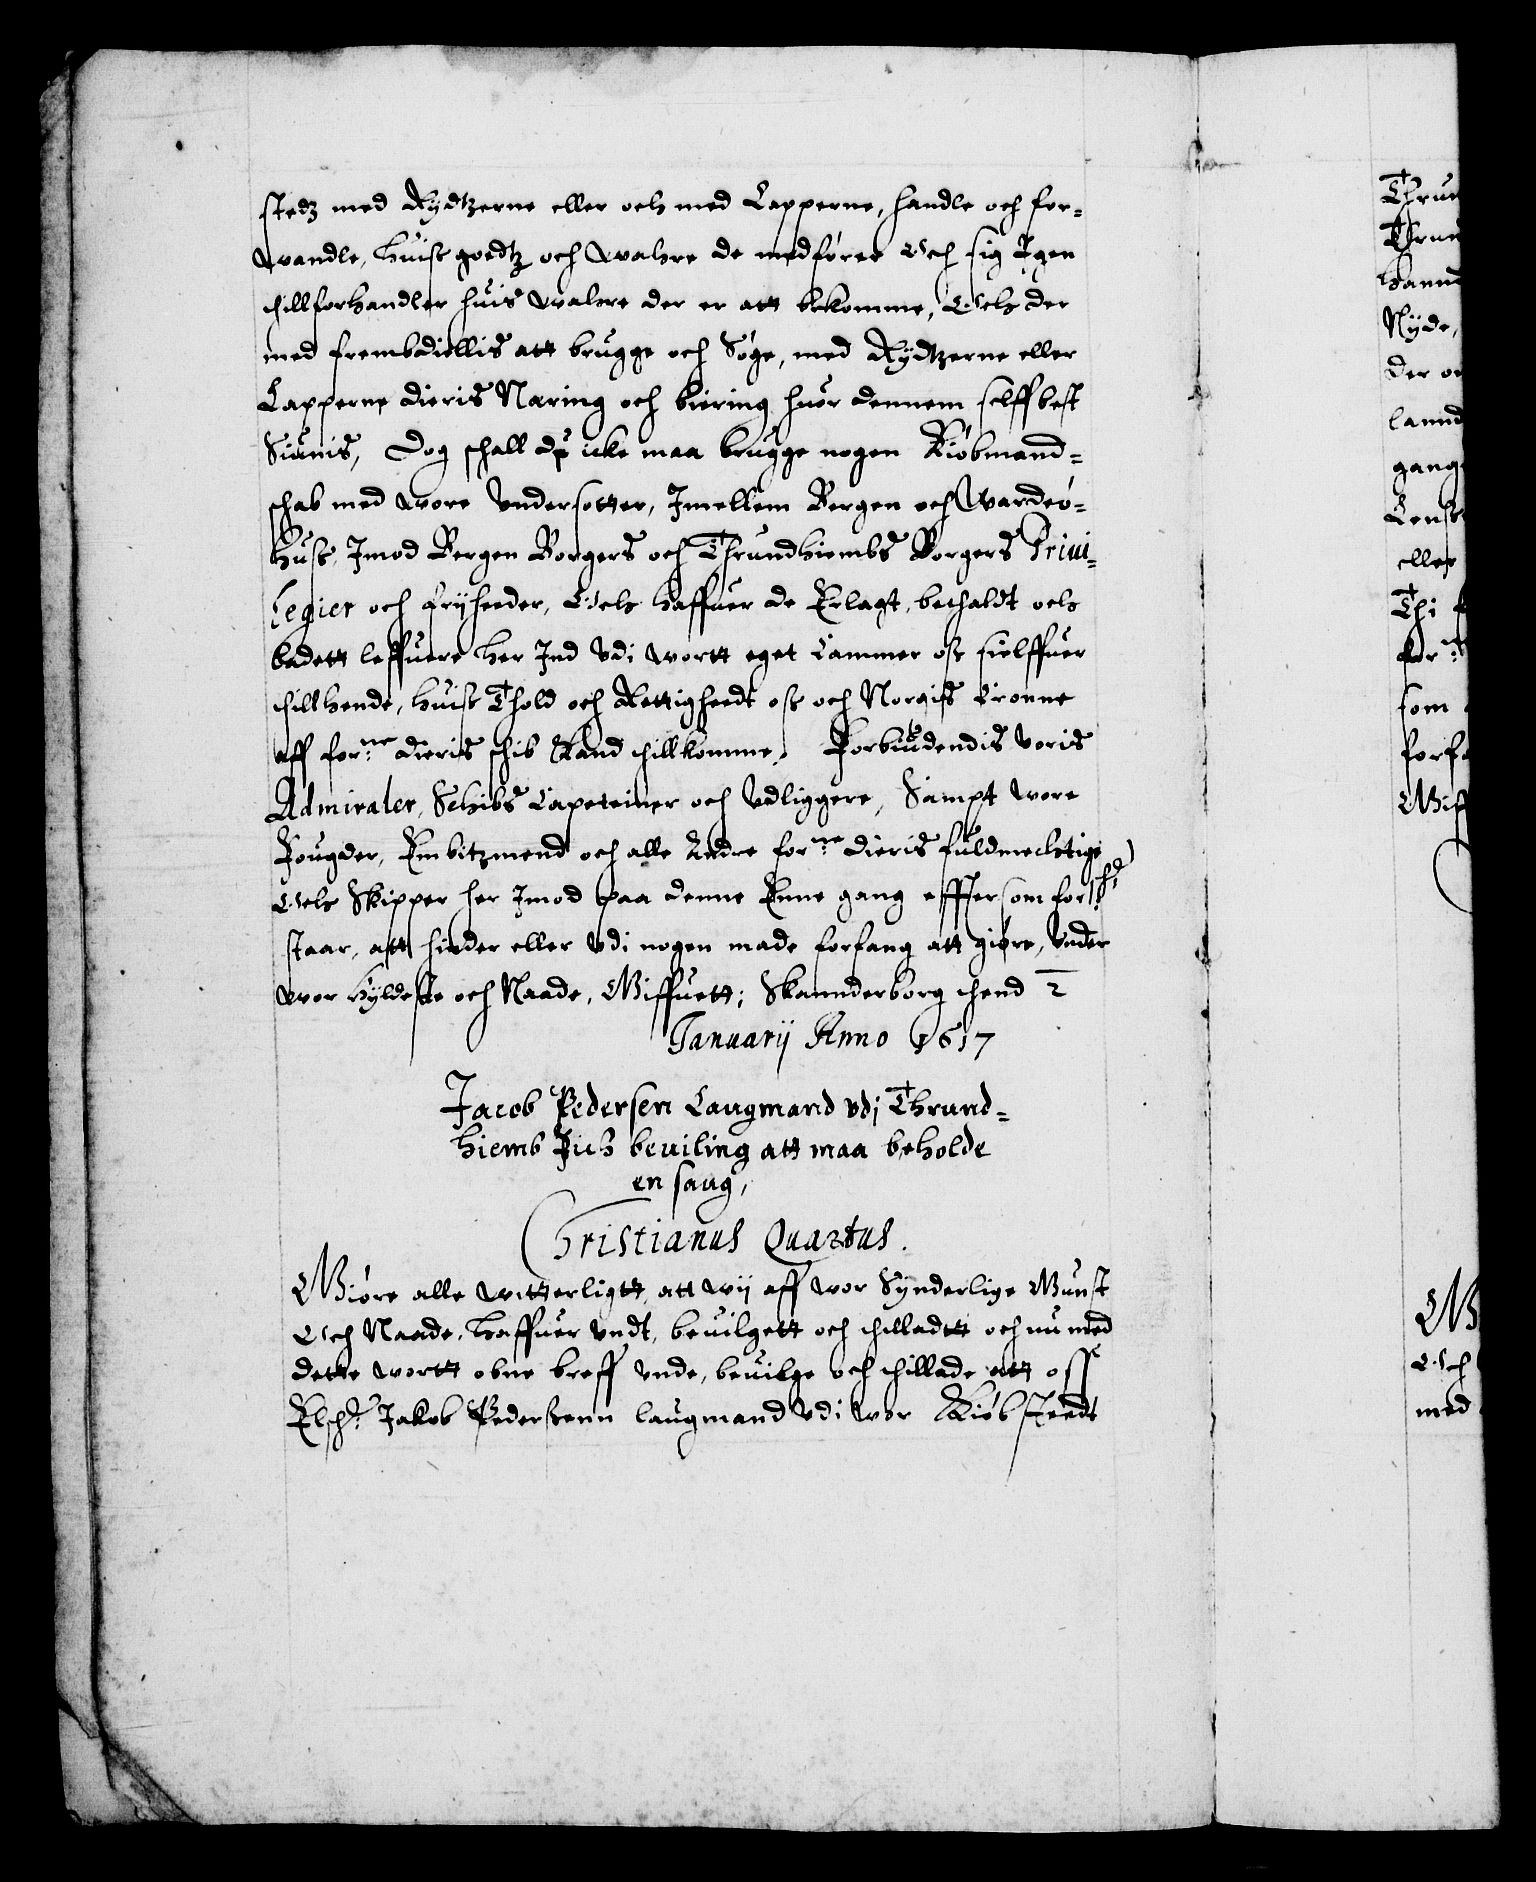 stedz med Rydtzerne eller och med Lapperne, handle och for-
wandle, huist goedtz och wahre de medfører Och sig Igen
thillforhandler huis wahre der er att bekomme, Och der
med frembdiellis att brugge och Søge, med Rydtzerne eller
Lapperne dieris Næring och biering huor dennem selff best
Siunis, Dog schall de icke maa brugge nogen Kiøbmand-
schab med wore Undersotter, Imellem Bergen och Wardeø-
huss, Imod Bergen Borgers och Thrundhiembs Borgers Priui-
legier och fryheeder, Och haffuer de Erlagt, bethaldt och
badett leffuere her Ind Udi wortt eget Cammer oss sielffuer
thillhende, huist Thold och Rettigheedt oss och Norgis Cronne
aff forne dieris schib Kand thillkomme. Forbiudendis Voris
Admiraler, Schibs Capeteiner och Udliggere, Sampt wore
Fougder, Embitzmend och alle Andre forne dieris fuldmechtige
Och Skipper her Imod paa denne Enne gang effter som forschr
staar, att hinder eller Udi nogen made forfang att giøre, Under
wor hyldeste och Naade, Giffuett; Skannderborg thend 2
Januarij Anno 1617
Jacob Pedersen Laugmand Udj Thrund-
hiemb Fich beuiling att maa beholde
en saug,
Christianus Quartus.
Giøre alle witterligtt, att wij aff wor Synderlige Gunst
Och Naade, haffuer Undt, beuilgett och thilladtt och nu med
dette wortt obne breff Unde, beuilge och thillade att oss
Elsch: Jakob Pederssenn laugmand Udi wor Kiøbsteedt